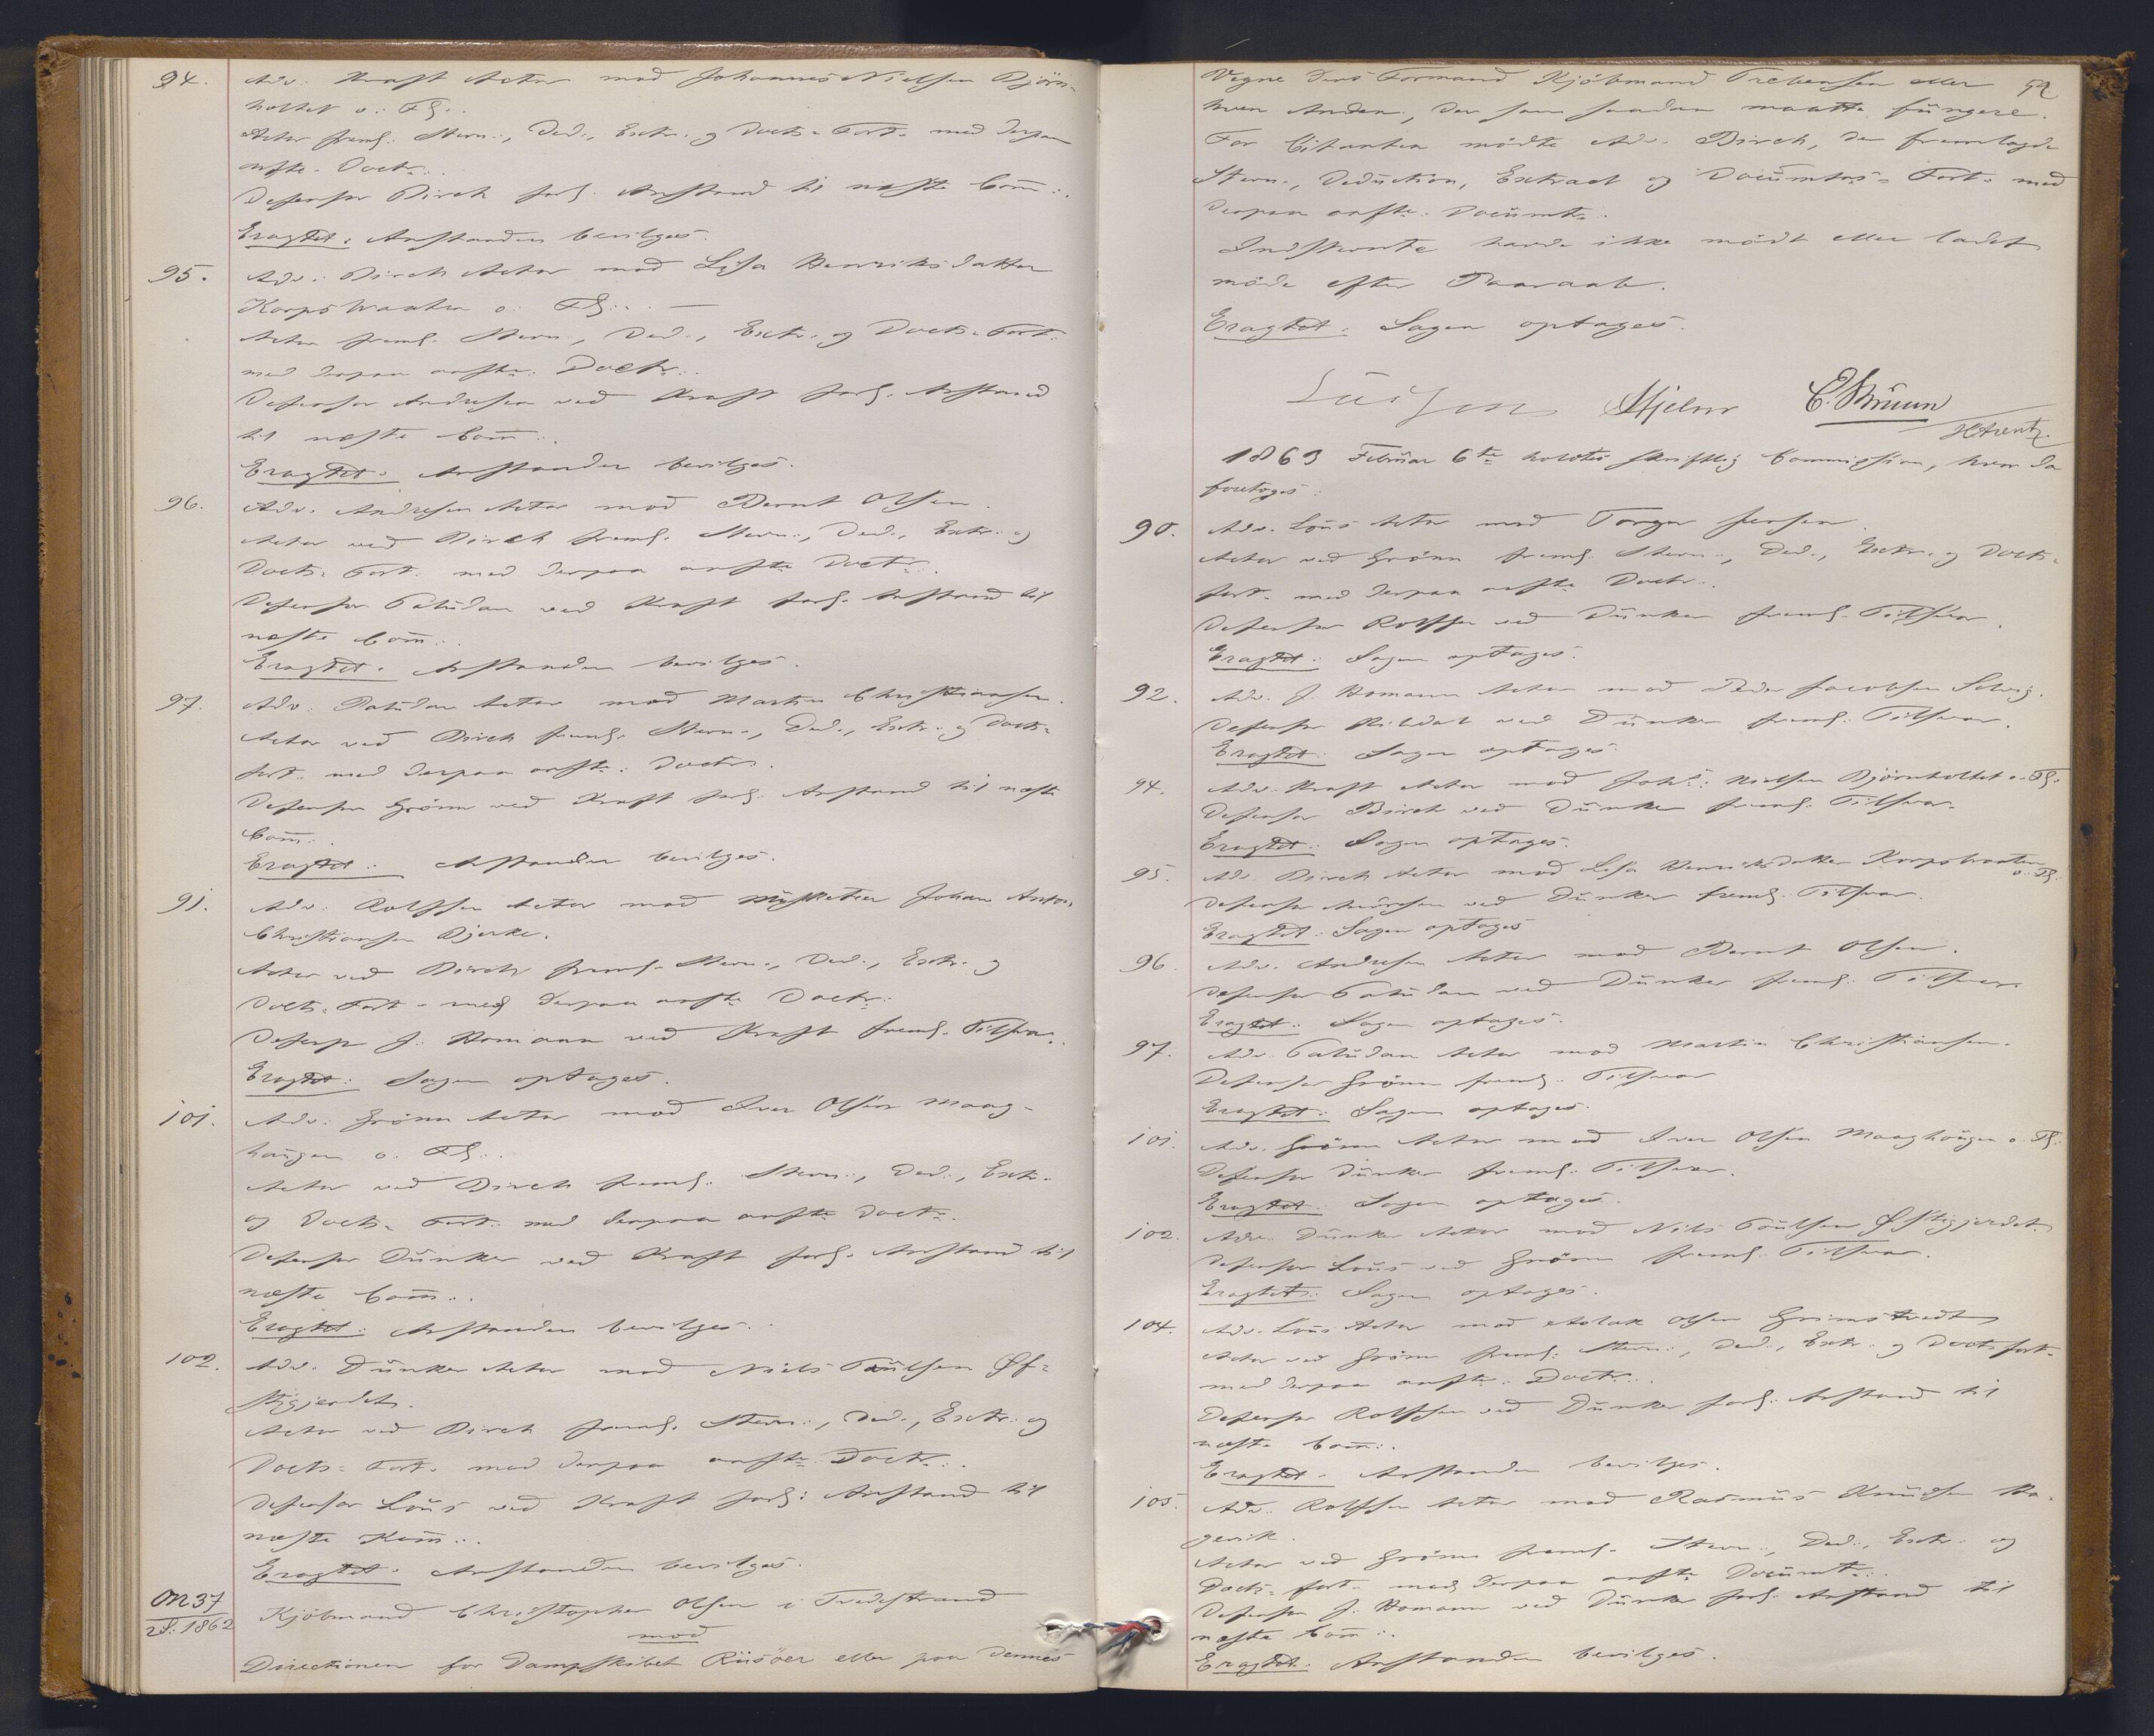 94. Adv. Kraft Actor mod Johannes Nielsen Björn-
holtet o. Fl:.
Actor freml. Stevn:, Ded:, Extr. og Docts. Fort. med derpaa
anfte. Doctr:.
Defensor Birch forl. Anstand til næste Com̄:.
Eragtet: Anstanden bevilges.
95. Adv. Birch Actor mod Lisa Henriksdatter
Korpshvaaken o. Fl:. —
Actor freml. Stevn:, Ded:, Extr. og Docts. Fort.
med derpaa anfte: Doctr:.
Defensor Andresen ved Kraft forl. Anstand
til næste Com̄:.
Eragtet: Anstanden bevilges.
96. Adv. Andresen Actor mod Bernt Olsen.
Actor ved Birch freml. Stevn:, Ded:, Extr. og
Docts. Fort. med derpaa anfte Doctr:.
Defensor Paludan ved Kraft forl. Anstand til
næste Com̄:.
Eragtet: Anstanden bevilges.
97. Adv. Paludan Actor mod Martin Christiansen.
Actor ved Birch freml. Stevn:, Ded:, Extr. og Docts.
fort. med derpaa anfte: Doctr:.
Defensor Grönn ved Kraft forl. Anstand til næste
Com̄:.
Eragtet: Anstanden bevilges.
91. Adv. Rolfsen Actor mod Musketeer Johan Anton
Christiansen Bjerke.
Actor ved Birch freml. Stevn:, Ded:, Extr. og
Docts. Fort. med derpaa anfte Doctr:
Defensor J. Homann ved Kraft freml. Tilsvar.
Eragtet: Sagen optages.
101. Adv. Grönn Actor mod Iver Olsen Maag-
haugen o. Fl:.
Actor ved Birch freml. Stevn:, Ded:, Extr.
og Docts. Fort. med derpaa anfte Doctr:.
Defensor Dunker ved Kraft forl. Anstand til
næste Com̄:.
Eragtet: Anstanden bevilges.
102. Adv. Dunker Actor mod Niels Poulsen Øf-
stigjerdet.
Actor ved Birch freml. Stevn:, Ded:, Extr. og
Docts. Fort. med derpaa anfte Doctr:.
Defensor Lous ved Kraft forl: Anstand til
næste Kom̄:.
Eragtet: Anstanden bevilges.
No 37
2 S. 1862 Kjöbmand Christopher Olsen i Tvedestrand
mod
Directionen for Dampskibet Riisöer eller paa dennes
52
Vegne dens Formand Kjöbmand Prebensen eller
hvem Anden, der som saadan maatte fungere.
For Citanten mödte Adv. Birch, der fremlagde
Stevn:, Deduction, Extract og Documts. Fort. med
derpaa anfte: Documt:.
Indstevnte havde ikke mödt eller ladet
möde efter Paaraab.
Eragtet: Sagen optages.
Hjelm E. Bruun
HArentz
1863 Februar 6te holdtes skriftlig Commission, hvor da
foretoges:
90. Adv. Lous Actor mod Torger Jensen.
Actor ved Grönn freml: Stevn:, Ded:, Extr. og Docts.
fort. med derpaa anfte Doctr:.
Defensor Rolfsen ved Dunker freml. Tilsvar.
Eragtet: Sagen optages.
92. Adv. J. Homann Actor mod Peder Jacobsen Selvig.
Defensor Rildal ved Dunker freml: Tilsvar.
Eragtet: Sagen optages.
94. Adv. Kraft Actor mod Johs: Nielsen Björnholtet o. Fl:
Defensor Birch ved Dunker freml. Tilsvar.
Eragtet: Sagen optages.
95. Adv. Birch Actor mod Lisa Henriksdatter Korpshvaaken
o. Fl:
Defensor Andresen ved Dunker freml. Tilsvar.
Eragtet: Sagen optages
96. Adv. Andresen Actor mod Bernt Olsen.
Defensor Paludan ved Dunker freml: Tilsvar.
Eragtet: Sagen optages.
97. Adv. Paludan Actor mod Martin Christiansen.
Defensor Grönn freml. Tilsvar
Eragtet: Sagen optages.
101. Adv. Grönn Actor mod Iver Olsen Maaghaugen o. Fl:
Defensor Dunker freml: Tilsvar.
Eragtet: Sagen optages.
102. Adv. Dunker Actor mod Nils Poulsen Øfstigjerdet.
Defensor Lous ved Grönn freml. Tilsvar.
Eragtet: Sagen optages.
104. Adv. Lous Actor mod Aslak Olsen Grimstvedt
Actor ved Grönn freml: Stevn:, Ded:, Extr. og Docts fort.
med derpaa anfte: Doctr:.
Defensor Rolfsen ved Dunker forl: Anstand til
næste Com̄:.
Eragtet: Anstanden bevilges.
105. Adv. Rolfsen Actor mod Rasmus Knudsen Ha-
gevik.
Actor ved Grönn freml. Stevn:, Ded:, Extr. og
Docts. fort. med derpaa anfte Documt:.
Defensor J. Homann ved Dunker forl. Anstand til
næste Com̄:.
Eragtet: Anstanden bevilges.